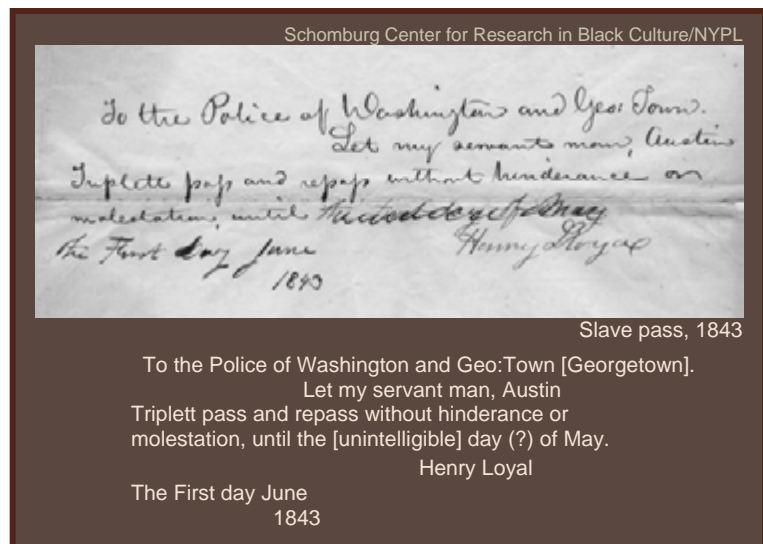 Schomburg Center for Research in Black Culture/NYPL
To the Police of Washington and Geo: Town.
Let my servant man, Austin
Triplett pass and repass without hinderance or
molestation, until the day of May
the First day June
Henry Loyal
1843
Slave pass, 1843
To the Police of Washington and Geo:Town [Georgetown].
Let my servant man, Austin
Triplett pass and repass without hinderance or
molestation, until the [unintelligible] day (?) of May.
Henry Loyal
The First day June
1843